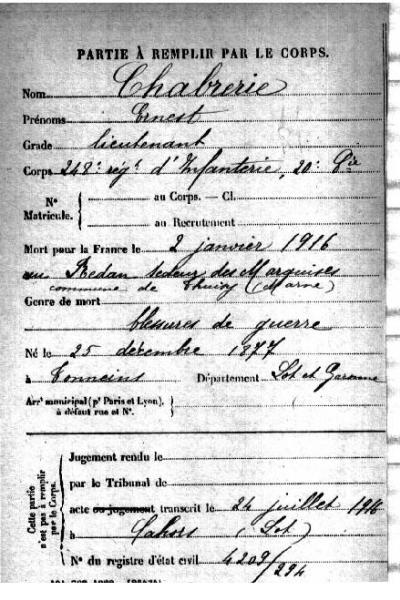 PARTIE À REMPLIR PAR LE CORPS.
Nom Chabrerie
Prénoms Ernest
Grade lieutenant
Corps 248e régt d'Infanterie, 20e Cie
N° Matricule. { au Corps. — Cl.
au Recrutement
Mort pour la France le 2 janvier 1916
au Redan secteur des Marquises
commune de Thuisy (Marne)
Genre de mort
blessures de guerre
Né le 25 décembre 1877
à Tonneins Département Lot et Garonne
Arrt municipal (pr Paris et Lyon), à défaut rue et N°. }
Cette partie n'est pas à remplir par le Corps.
Jugement rendu le
par le Tribunal de
acte ou jugement transcrit le 24 juillet 1916
à Cahors (Lot)
N° du registre d'état civil 4209/294